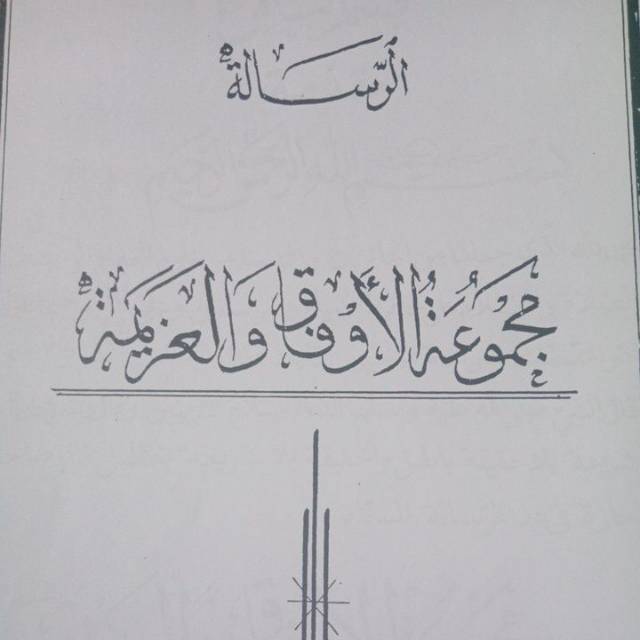 الرّسالة
مجموعة الأوفاق والعزيمة